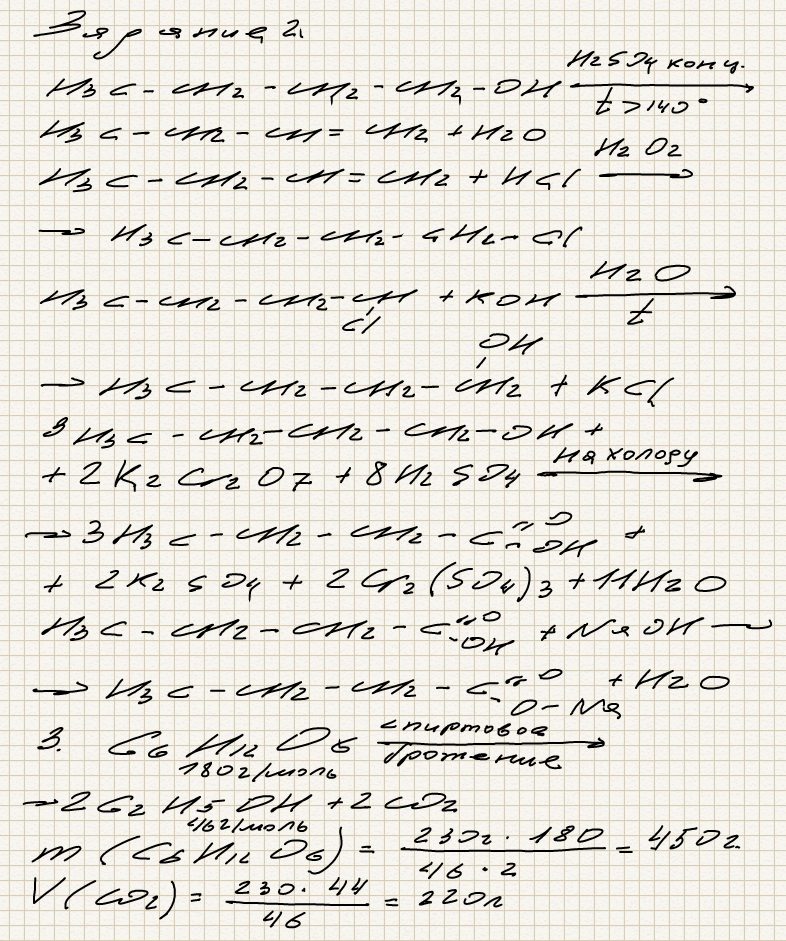 Задание 2.
H3C-CH2-CH2-CH2-OH H2SO4 конц. t>140°
H3C-CH2-CH=CH2+H2O
H3C-CH2-CH=CH2+HCl H2O2 →
→ H3C-CH2-CH2-CH2-Cl
H3C-CH2-CH2-CH +KOH H2O t →
Cl
OH
→ H3C-CH2-CH2-CH2 + KCl
3H3C-CH2-CH2-CH2-OH +
+ 2K2Cr2O7 + 8H2SO4 на холоду →
→ 3H3C-CH2-CH2-C=O -OH +
+ 2K2SO4 + 2Cr2(SO4)3 + 11H2O
H3C-CH2-CH2-C=O -OH + NaOH →
→ H3C-CH2-CH2-C=O -O-Na + H2O
3. C6H12O6 спиртовое брожение →
180г/моль
→ 2C2H5OH + 2CO2
46г/моль
m (C6H12O6) = 230г · 180 / 46 · 2 = 450г.
V(CO2) = 230 · 44 / 46 = 220л